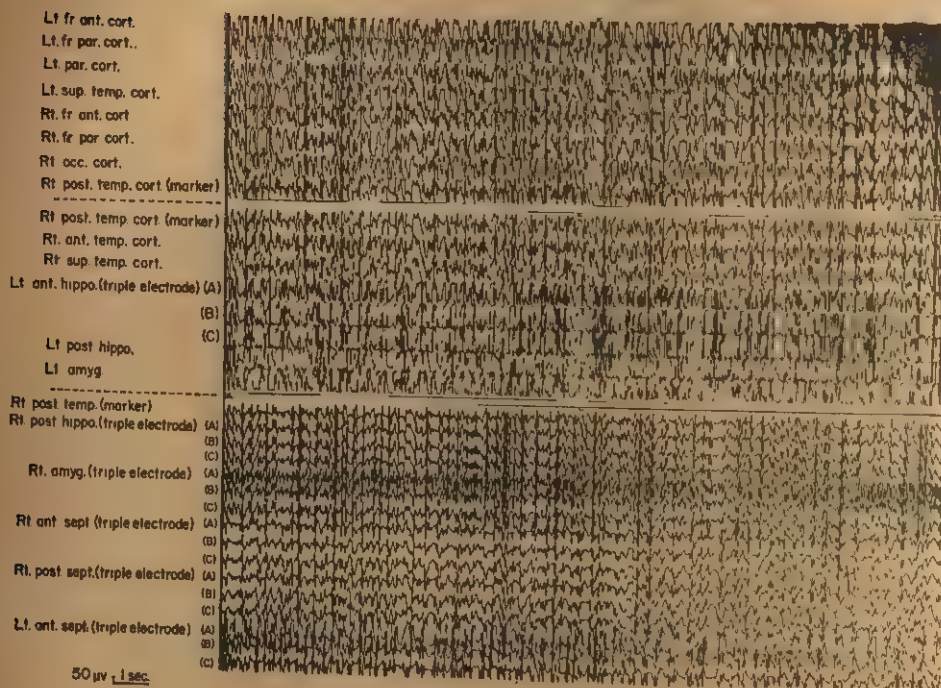 Lt fr ant. cort.
Lt. fr par. cort..
Lt. par. cort.
Lt. sup. temp. cort.
Rt. fr ant. cort
Rt. fr par cort.
Rt occ. cort.
Rt post. temp. cort. (marker)
Rt post. temp. cort. (marker)
Rt. ant. temp. cort.
Rt sup. temp. cort.
Lt ant. hippo. (triple electrode) (A)
(B)
(C)
Lt post hippo.
Lt amyg.
Rt post temp. (marker)
Rt. post hippo. (triple electrode) (A)
(B)
(C)
Rt. amyg. (triple electrode) (A)
(B)
(C)
Rt ant sept (triple electrode) (A)
(B)
(C)
Rt. post sept. (triple electrode) (A)
(B)
(C)
Lt. ant. sept. (triple electrode) (A)
(B)
(C)
50 μv 1 sec.